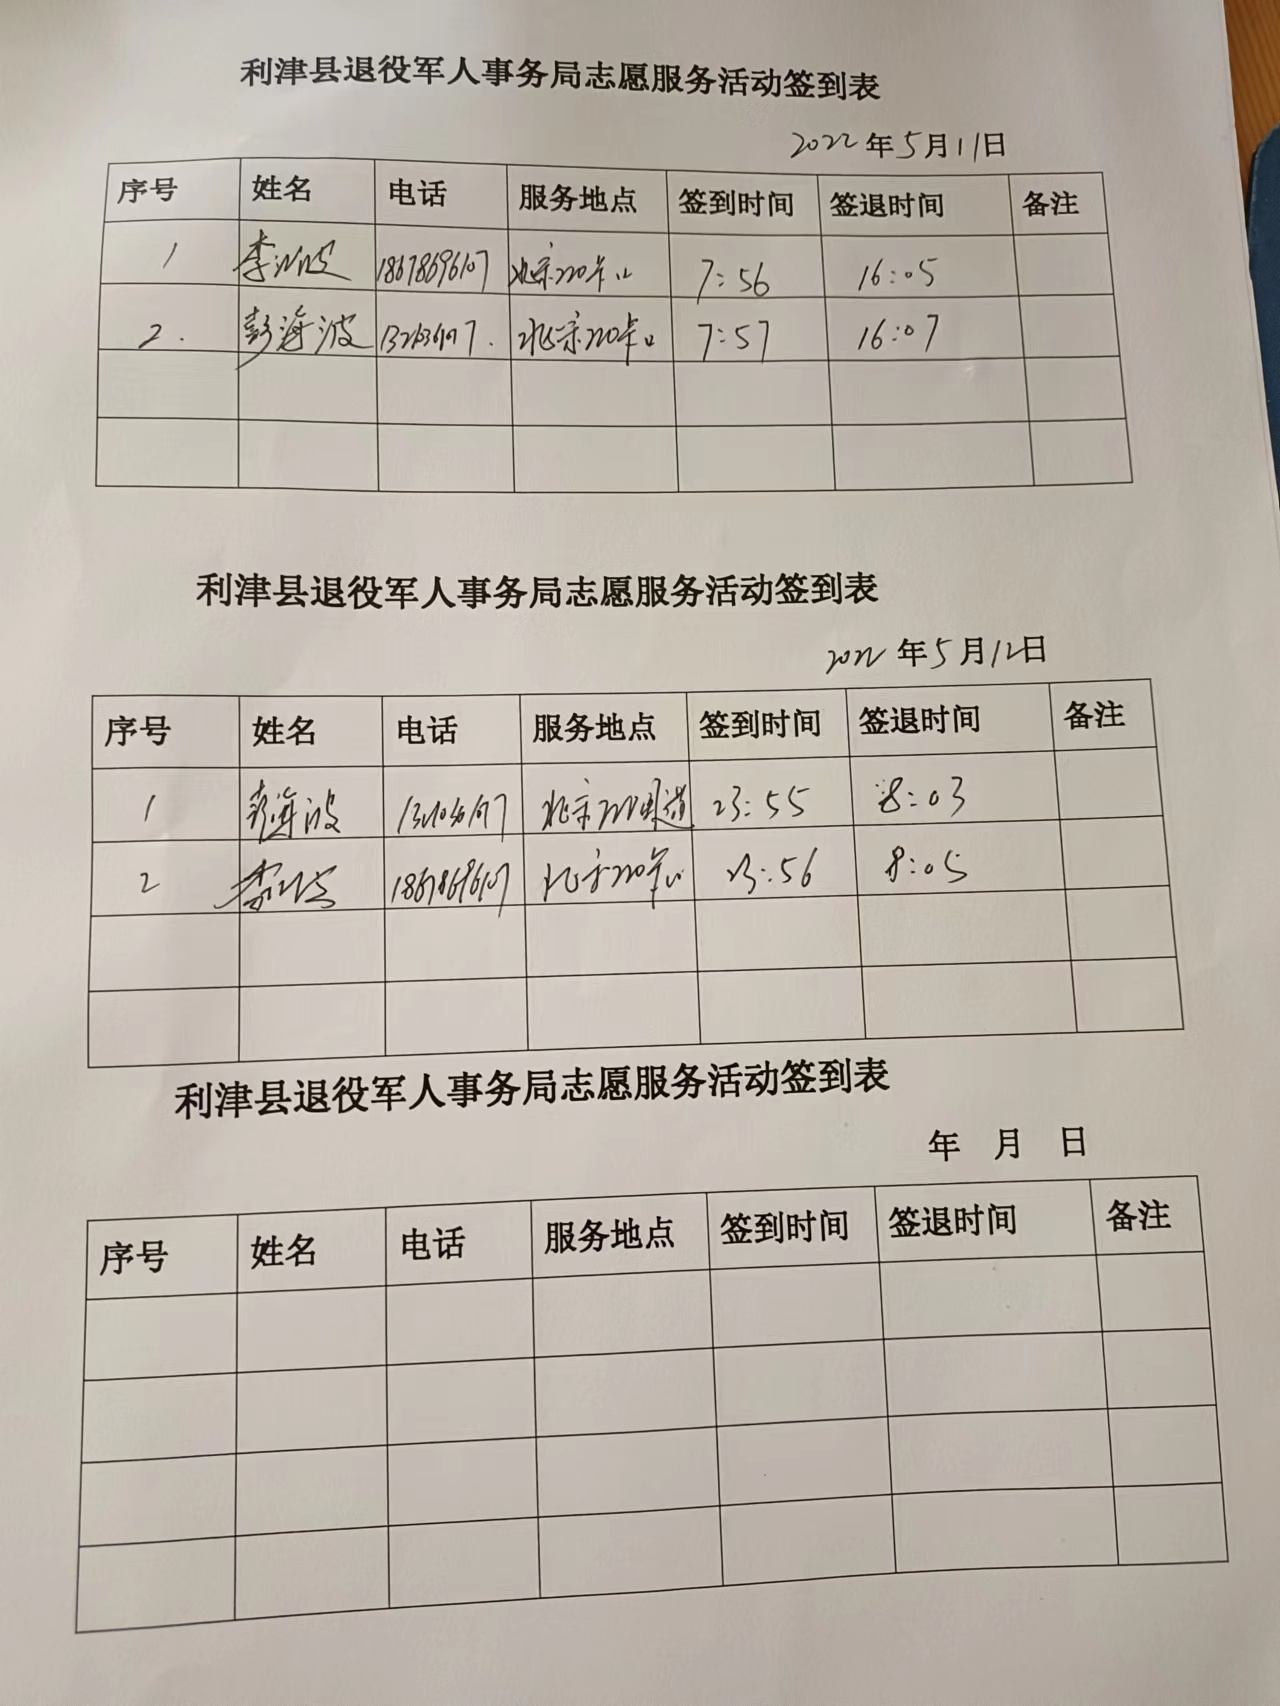 利津县退役军人事务局志愿服务活动签到表
2022年5月11日
序号 姓名 电话 服务地点 签到时间 签退时间 备注
1 李 18678696107 北京220卡口 7:56 16:05
2. 彭海波 北京220卡口 7:57 16:07
利津县退役军人事务局志愿服务活动签到表
2022年5月12日
序号 姓名 电话 服务地点 签到时间 签退时间 备注
1 彭海波 北京220国道 23:55 8:03
2 李 18678696107 北京220卡口 23:56 8:05
利津县退役军人事务局志愿服务活动签到表
年 月 日
序号 姓名 电话 服务地点 签到时间 签退时间 备注